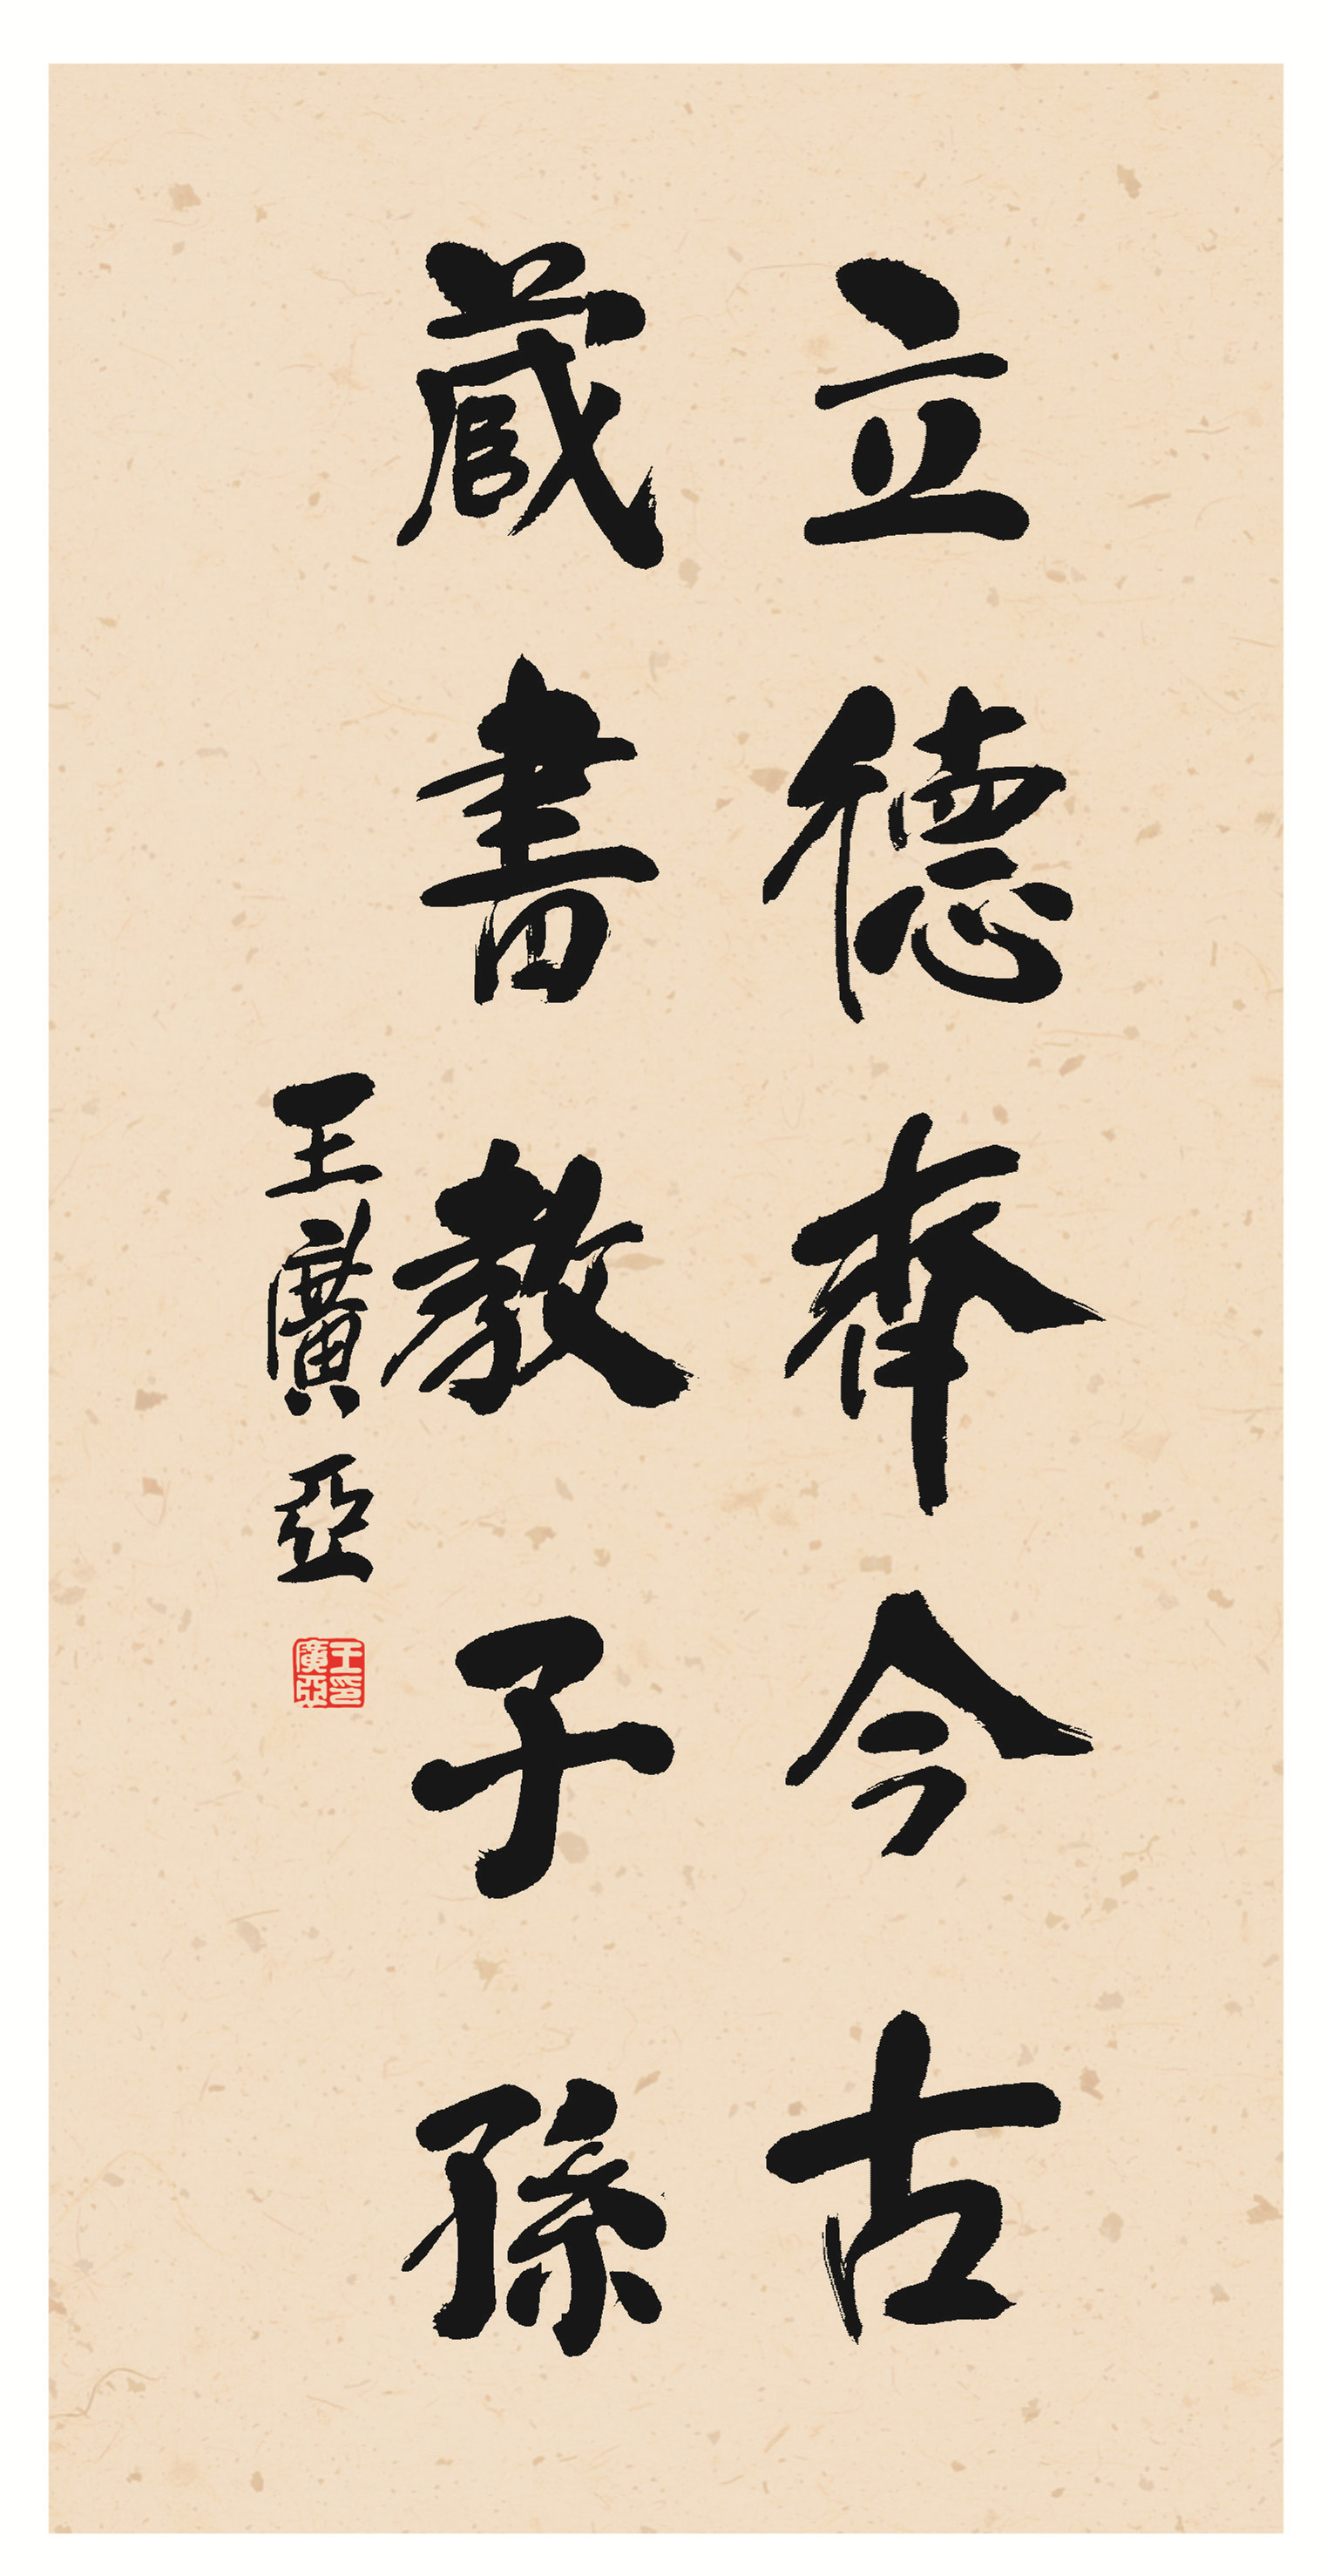 立德齊今古
藏書教子孫
王廣亞
王印
廣亞